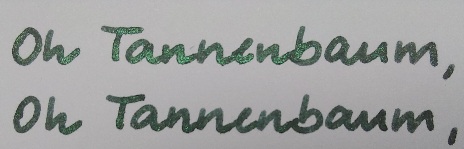 Oh Tannenbaum,
Oh Tannenbaum,